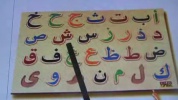 ا ب ت ث ج ح خ
د ذ ر ز س ش ص
ض ط ظ ع غ ف ق
ك ل م ن و ه ى